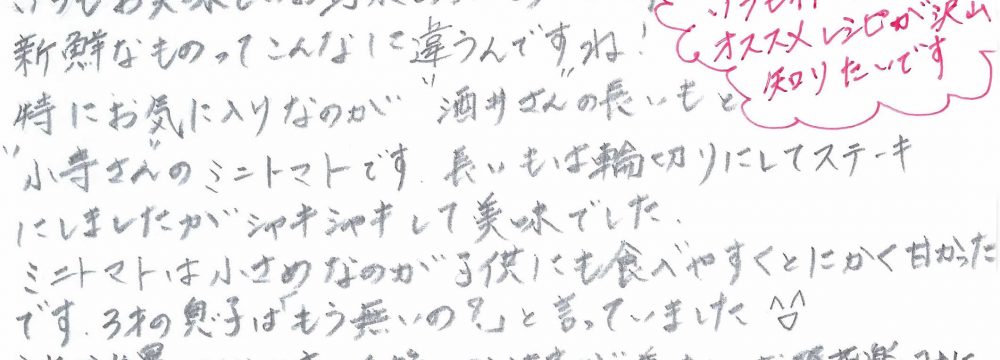 新鮮なものってこんなに違うんですね!
特にお気に入りなのが"酒井さん"の長いもと
"小寺さん"のミニトマトです.長いもは輪切りにしてステーキ
にしましたがシャキシャキして美味でした.
ミニトマトは小さめなのが子供にも食べやすくとにかく甘かった
です.3才の息子は「もう無いの?」と言っていました
オススメレシピが沢山
知りたいです